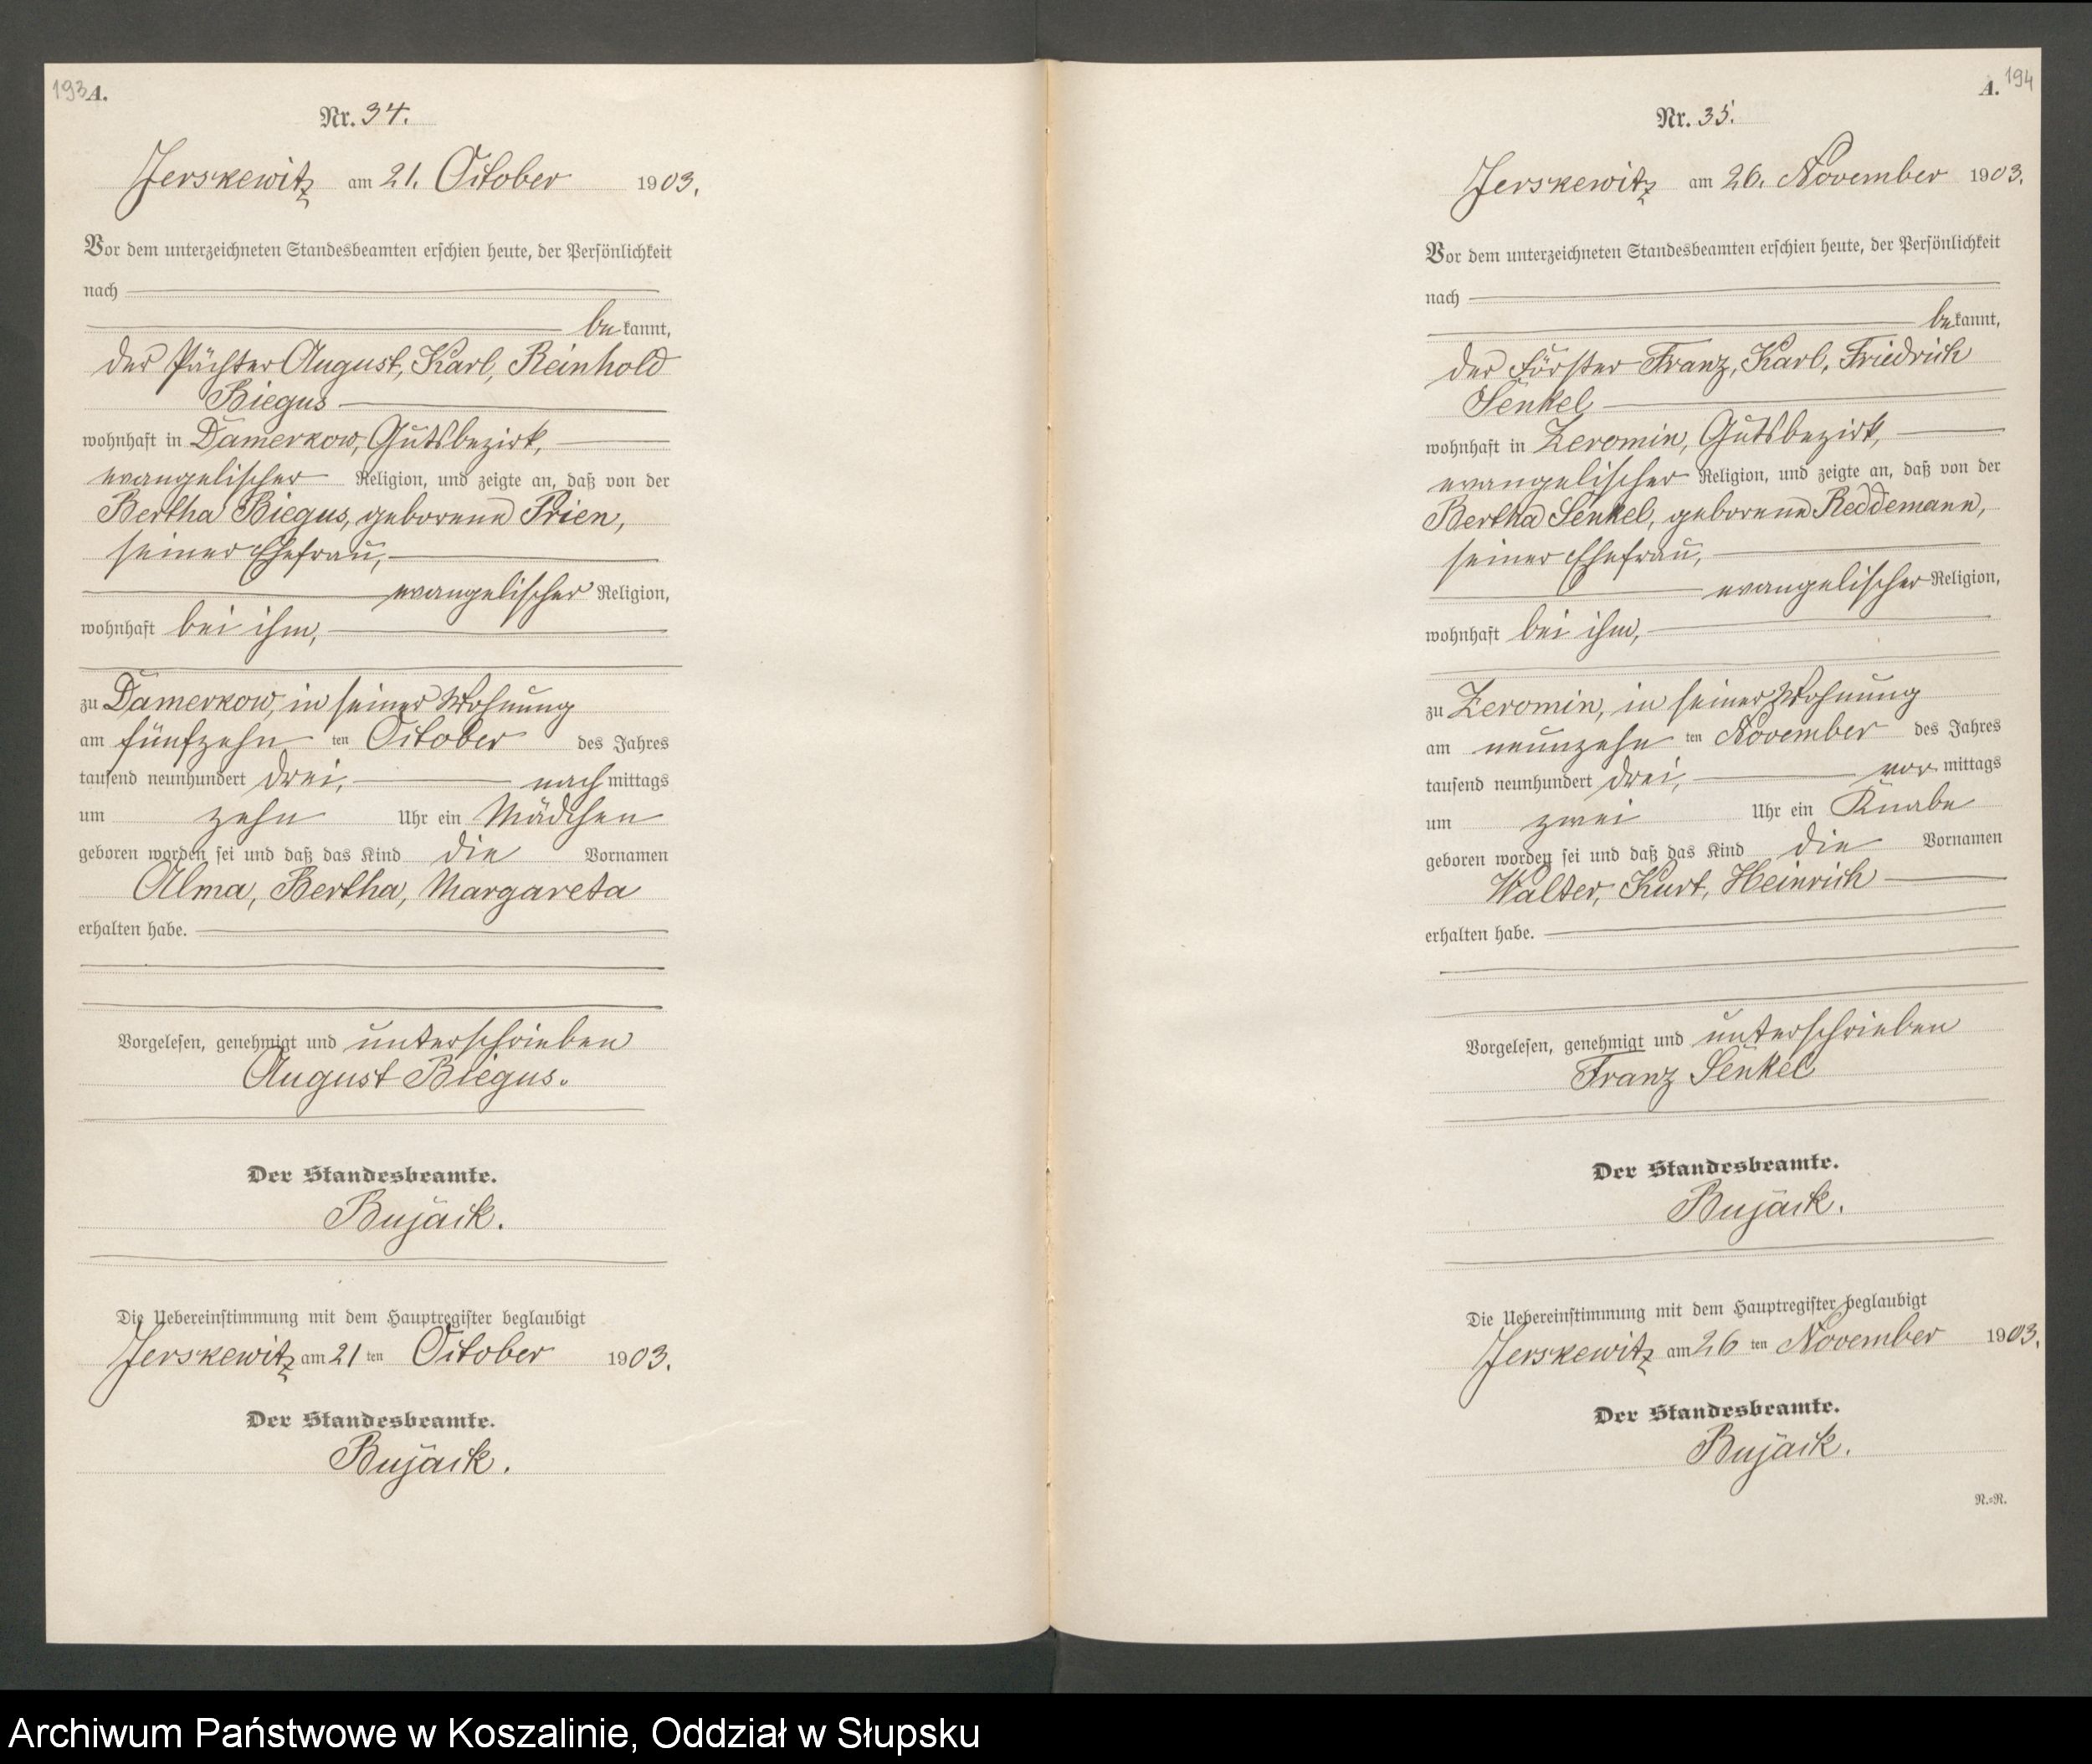 193 A.
Nr. 34.
Jerskewitz am 21. October 1903.
Vor dem unterzeichneten Standesbeamten erschien heute, der Persönlichkeit
nach
bekannt,
der Pächter August, Karl, Reinhold
Biegus
wohnhaft in Damerkow, Gutsbezirk,
evangelischer Religion, und zeigte an, daß von der
Bertha Biegus, geborene Prien,
seiner Ehefrau,
evangelischer Religion,
wohnhaft bei ihm,
zu Damerkow, in seiner Wohnung
am fünfzehn ten October des Jahres
tausend neunhundert drei, nachmittags
um zehn Uhr ein Mädchen
geboren worden sei und daß das Kind die Vornamen
Alma, Bertha, Margareta
erhalten habe.
Vorgelesen, genehmigt und unterschrieben
August Biegus.
Der Standesbeamte.
Bujack.
Die Uebereinstimmung mit dem Hauptregister beglaubigt
Jerskewitz am 21 ten October 1903.
Der Standesbeamte.
Bujack.
A. 194
Nr. 35.
Jerskewitz am 26. November 1903.
Vor dem unterzeichneten Standesbeamten erschien heute, der Persönlichkeit
nach
bekannt,
der Förster Franz, Karl, Friedrich
Senkel
wohnhaft in Zeromin, Gutsbezirk,
evangelischer Religion, und zeigte an, daß von der
Bertha Senkel, geborene Reddemann,
seiner Ehefrau,
evangelischer Religion,
wohnhaft bei ihm,
zu Zeromin, in seiner Wohnung
am neunzehn ten November des Jahres
tausend neunhundert drei, vormittags
um zwei Uhr ein Knabe
geboren worden sei und daß das Kind die Vornamen
Walter, Kurt, Heinrich
erhalten habe.
Vorgelesen, genehmigt und unterschrieben
Franz Senkel
Der Standesbeamte.
Bujack.
Die Uebereinstimmung mit dem Hauptregister beglaubigt
Jerskewitz am 26 ten November 1903.
Der Standesbeamte.
Bujack.
R.=R.
Archiwum Państwowe w Koszalinie, Oddział w Słupsku